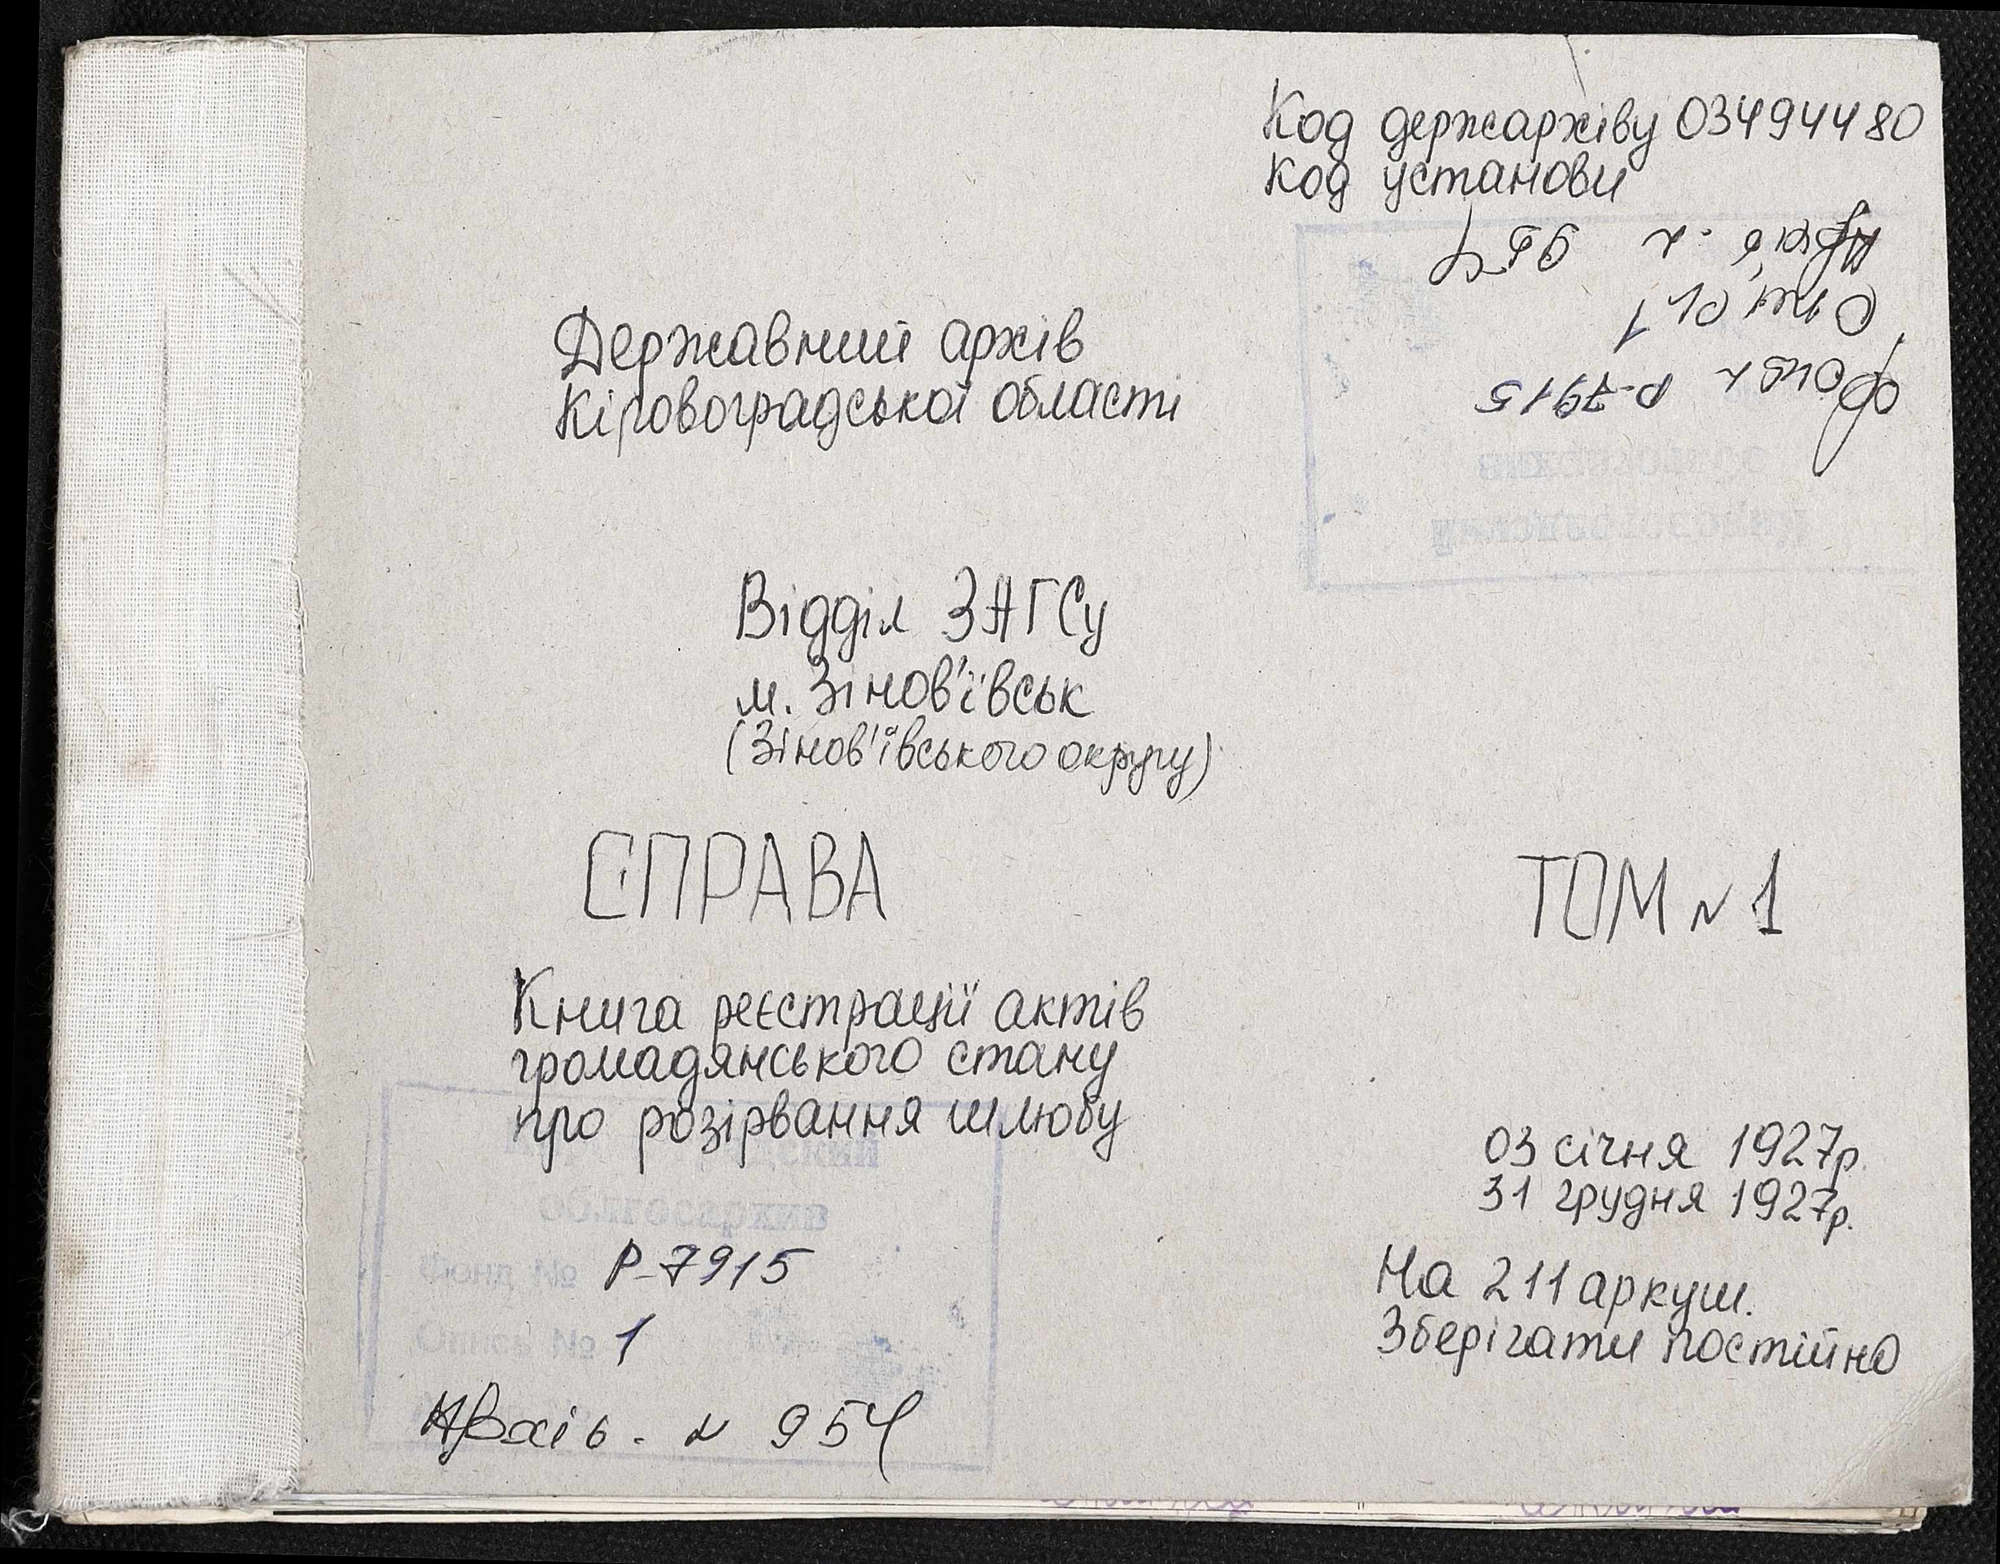 Код держархіву 03494480
Код установи
Архів. N 954
Опис N 1
Фонд N Р-7915
Державний архів
Кіровоградської області
Відділ ЗАГСу
м. Зінов'ївськ
(Зінов'ївського округу)
СПРАВА
ТОМ N 1
Книга реєстрації актів
громадянського стану
про розірвання шлюбу
03 січня 1927р.
31 грудня 1927р.
На 211 аркуш.
Зберігати постійно
облгосархив
Фонд № Р-7915
Опись № 1
Архів. N 954